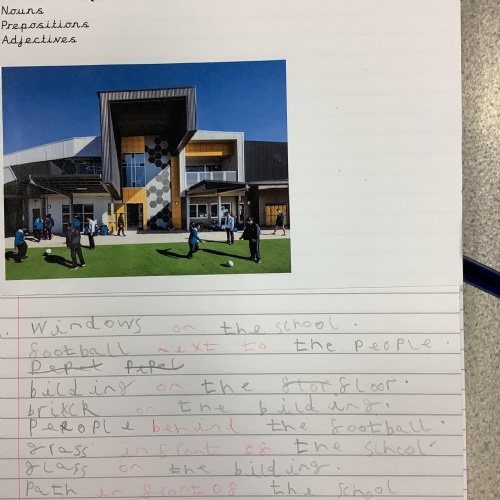 Nouns
Prepositions
Adjectives
Windows on the school.
football next to the people.
bilding on the floor.
brikck on the bilding.
Peropli behind the football.
grass in front of the school
glass on the bilding.
Path in front of the school